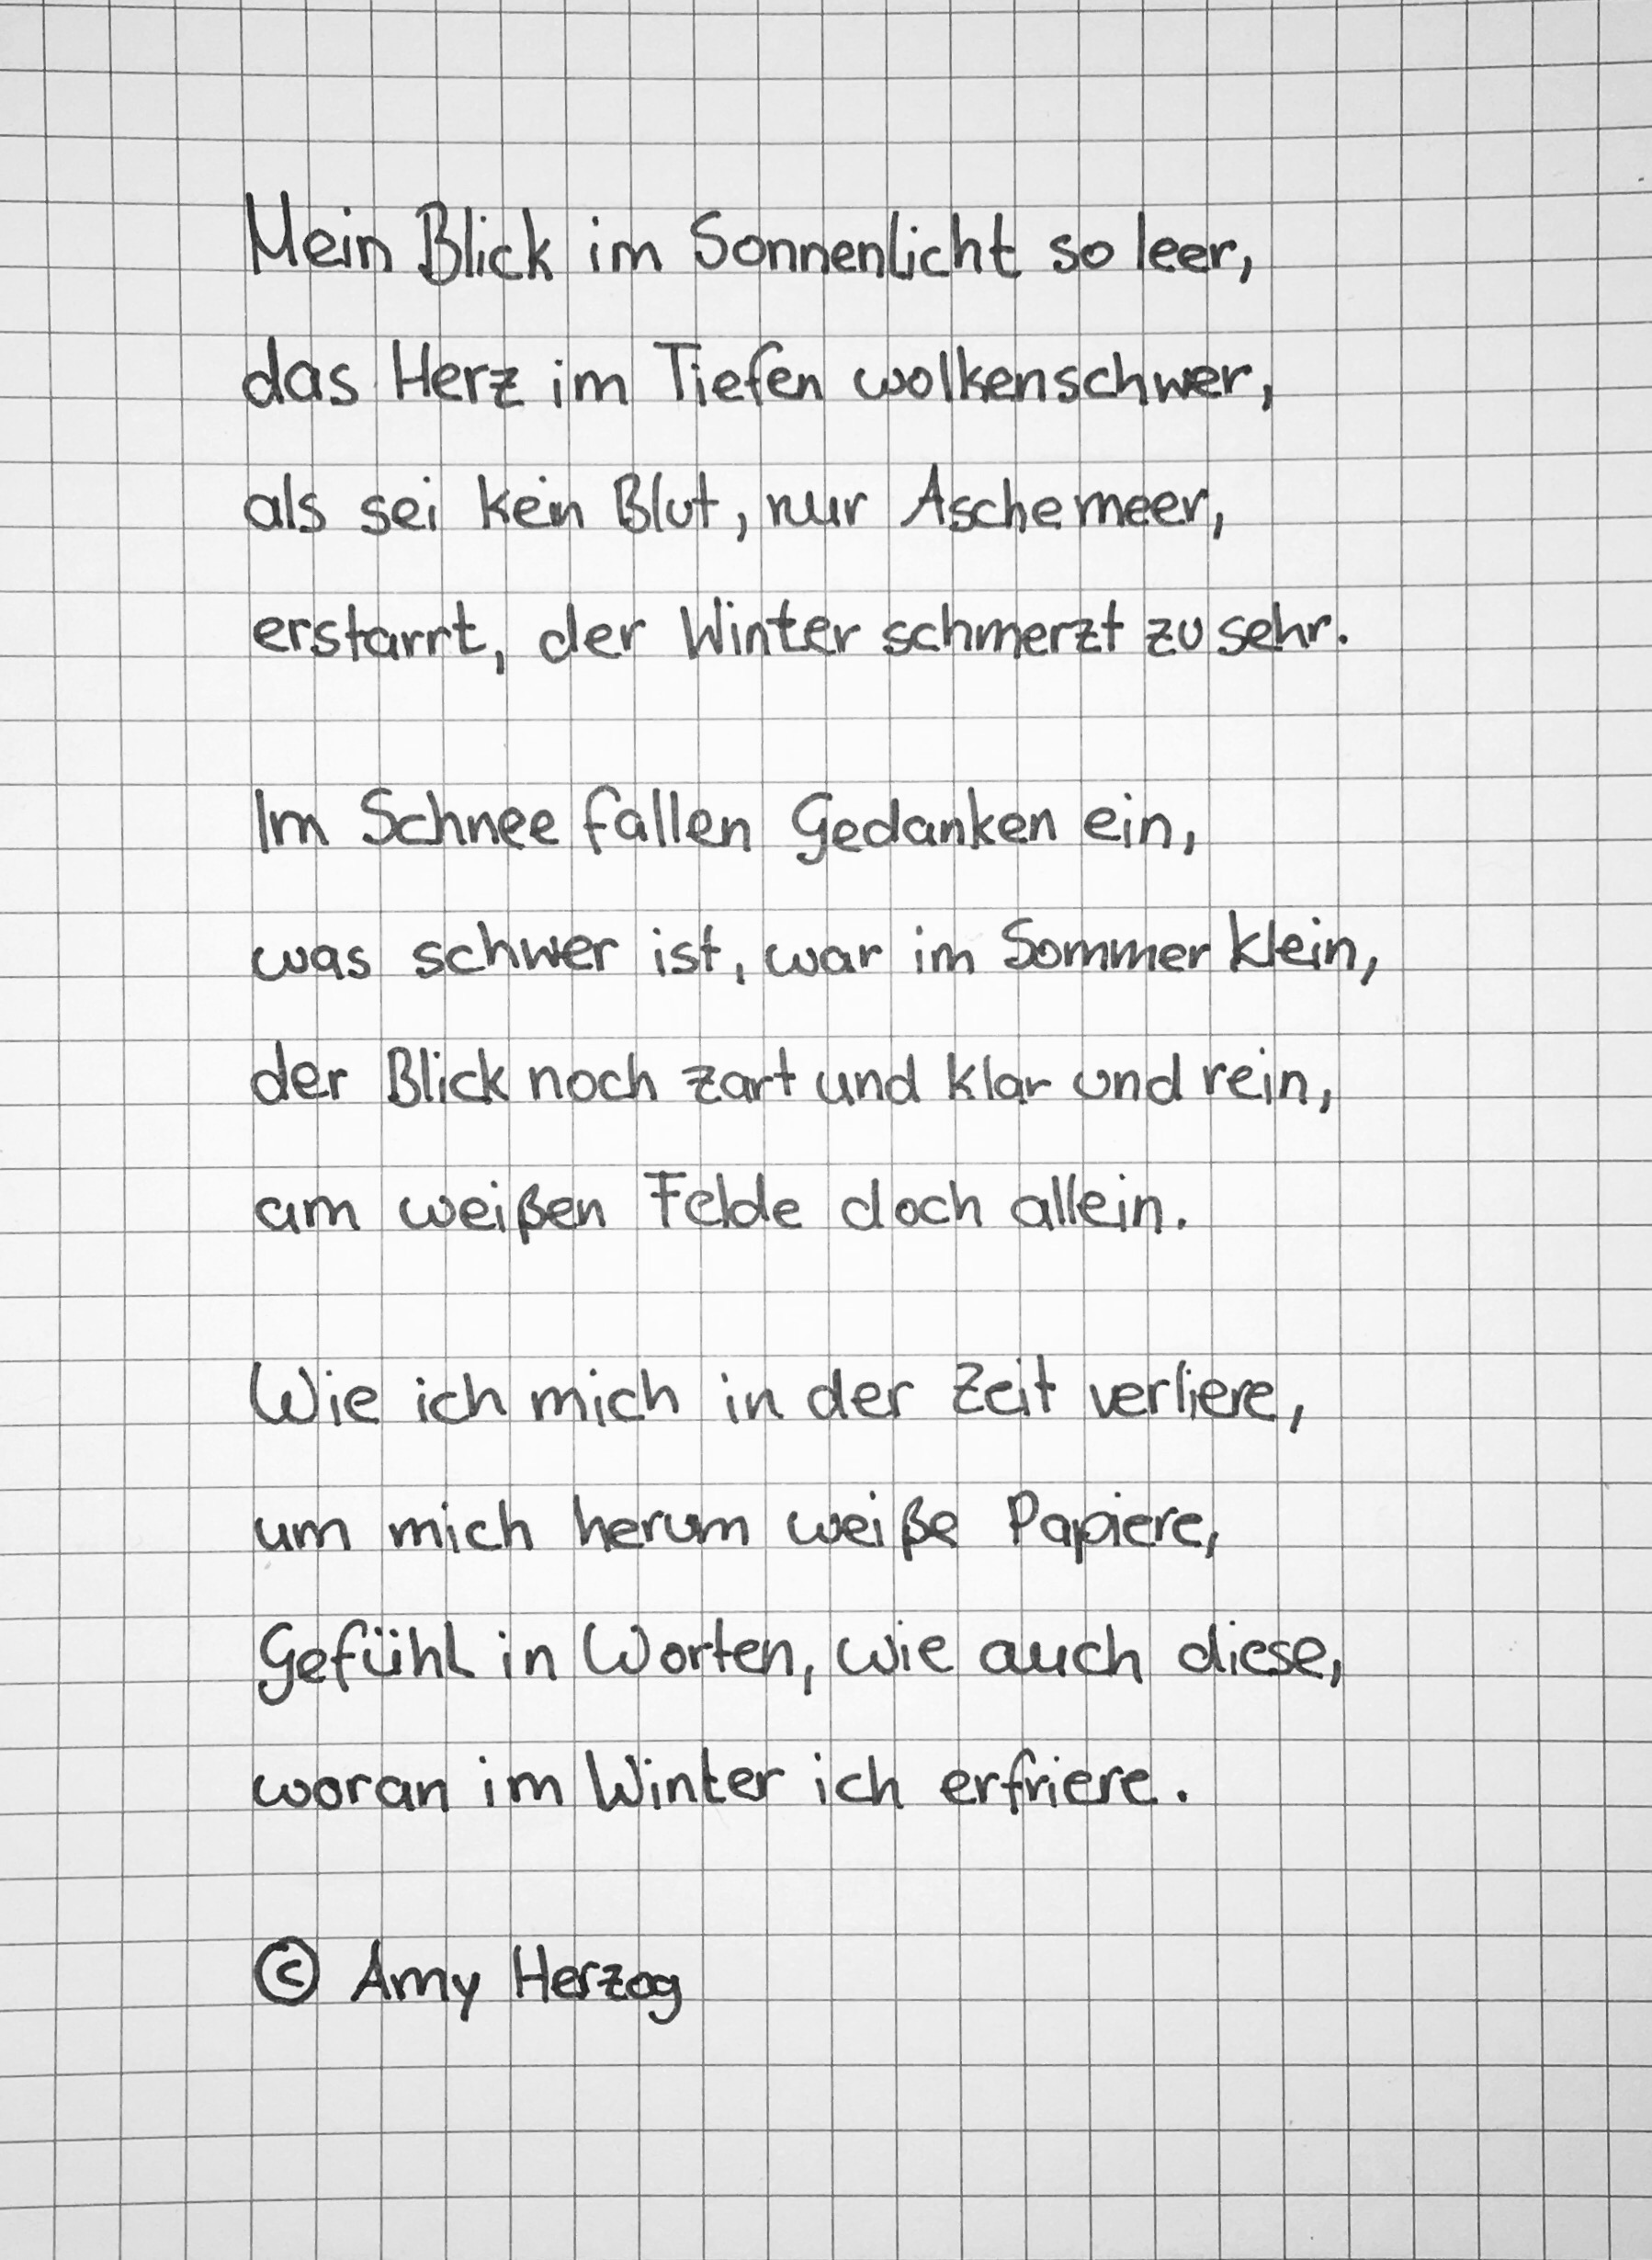 Mein Blick im Sonnenlicht so leer,
das Herz im Tiefen wolkenschwer,
als sei kein Blut, nur Aschemeer,
erstarrt, der Winter schmerzt zu sehr.
Im Schnee fallen Gedanken ein,
was schwer ist, war im Sommer klein,
der Blick noch zart und klar und rein,
am weißen Felde doch allein.
Wie ich mich in der Zeit verliere,
um mich herum weiße Papiere,
Gefühl in Worten, wie auch diese,
woran im Winter ich erfriere.
© Amy Herzog